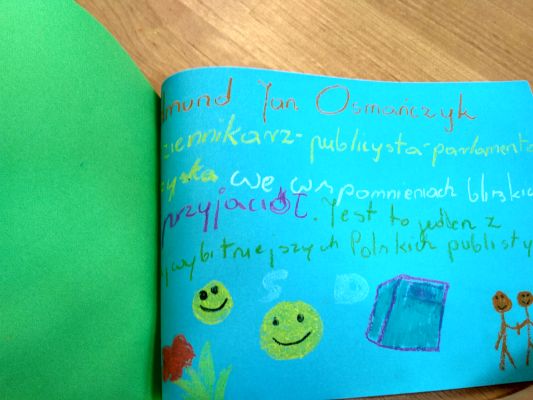 mund Jan Osmańczyk
ziennikarz-publicysta-parlamenta
zyska we wspomnieniach bliskich
przyjaciół. Jest to jeden z
jwybitniejszych Polskich publisty
S D